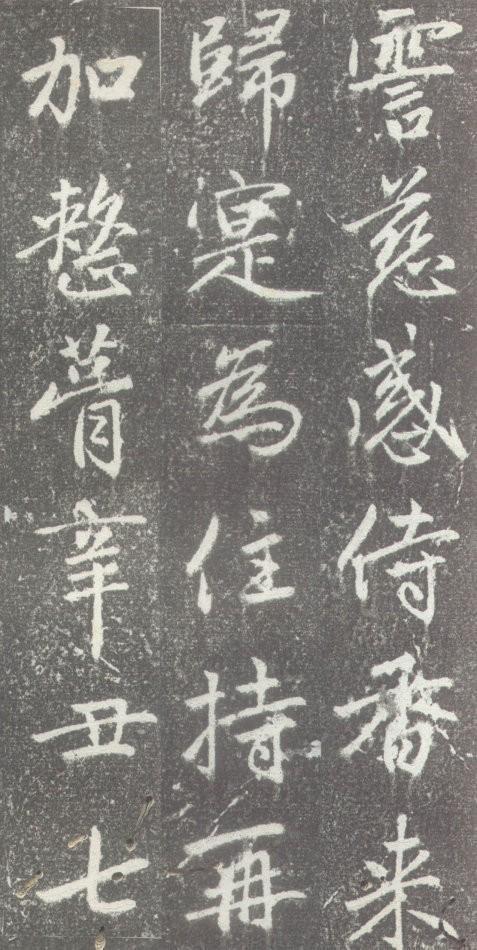 霅慈感侍来
歸寔為住持再
加整葺辛丑七